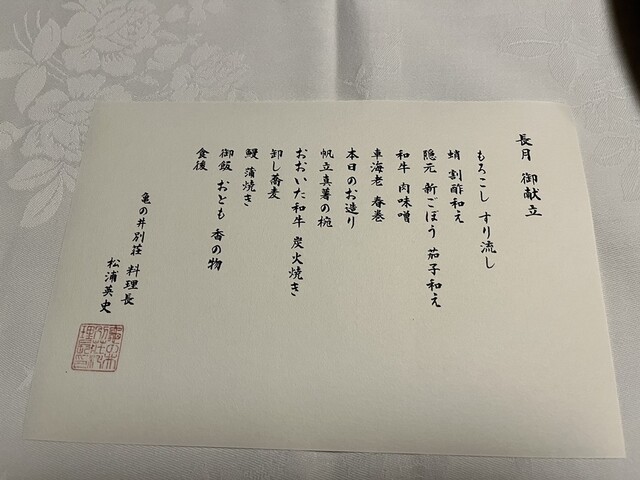 長月 御献立
もろこし すり流し
蛸 割酢和え
隠元 新ごぼう 茄子和え
和牛 肉味噌
車海老 春巻
本日のお造り
帆立真薯の椀
おおいた和牛 炭火焼き
卸し蕎麦
鰻 蒲焼き
御飯 おとも 香の物
食後
亀の井別荘 料理長
松浦英史